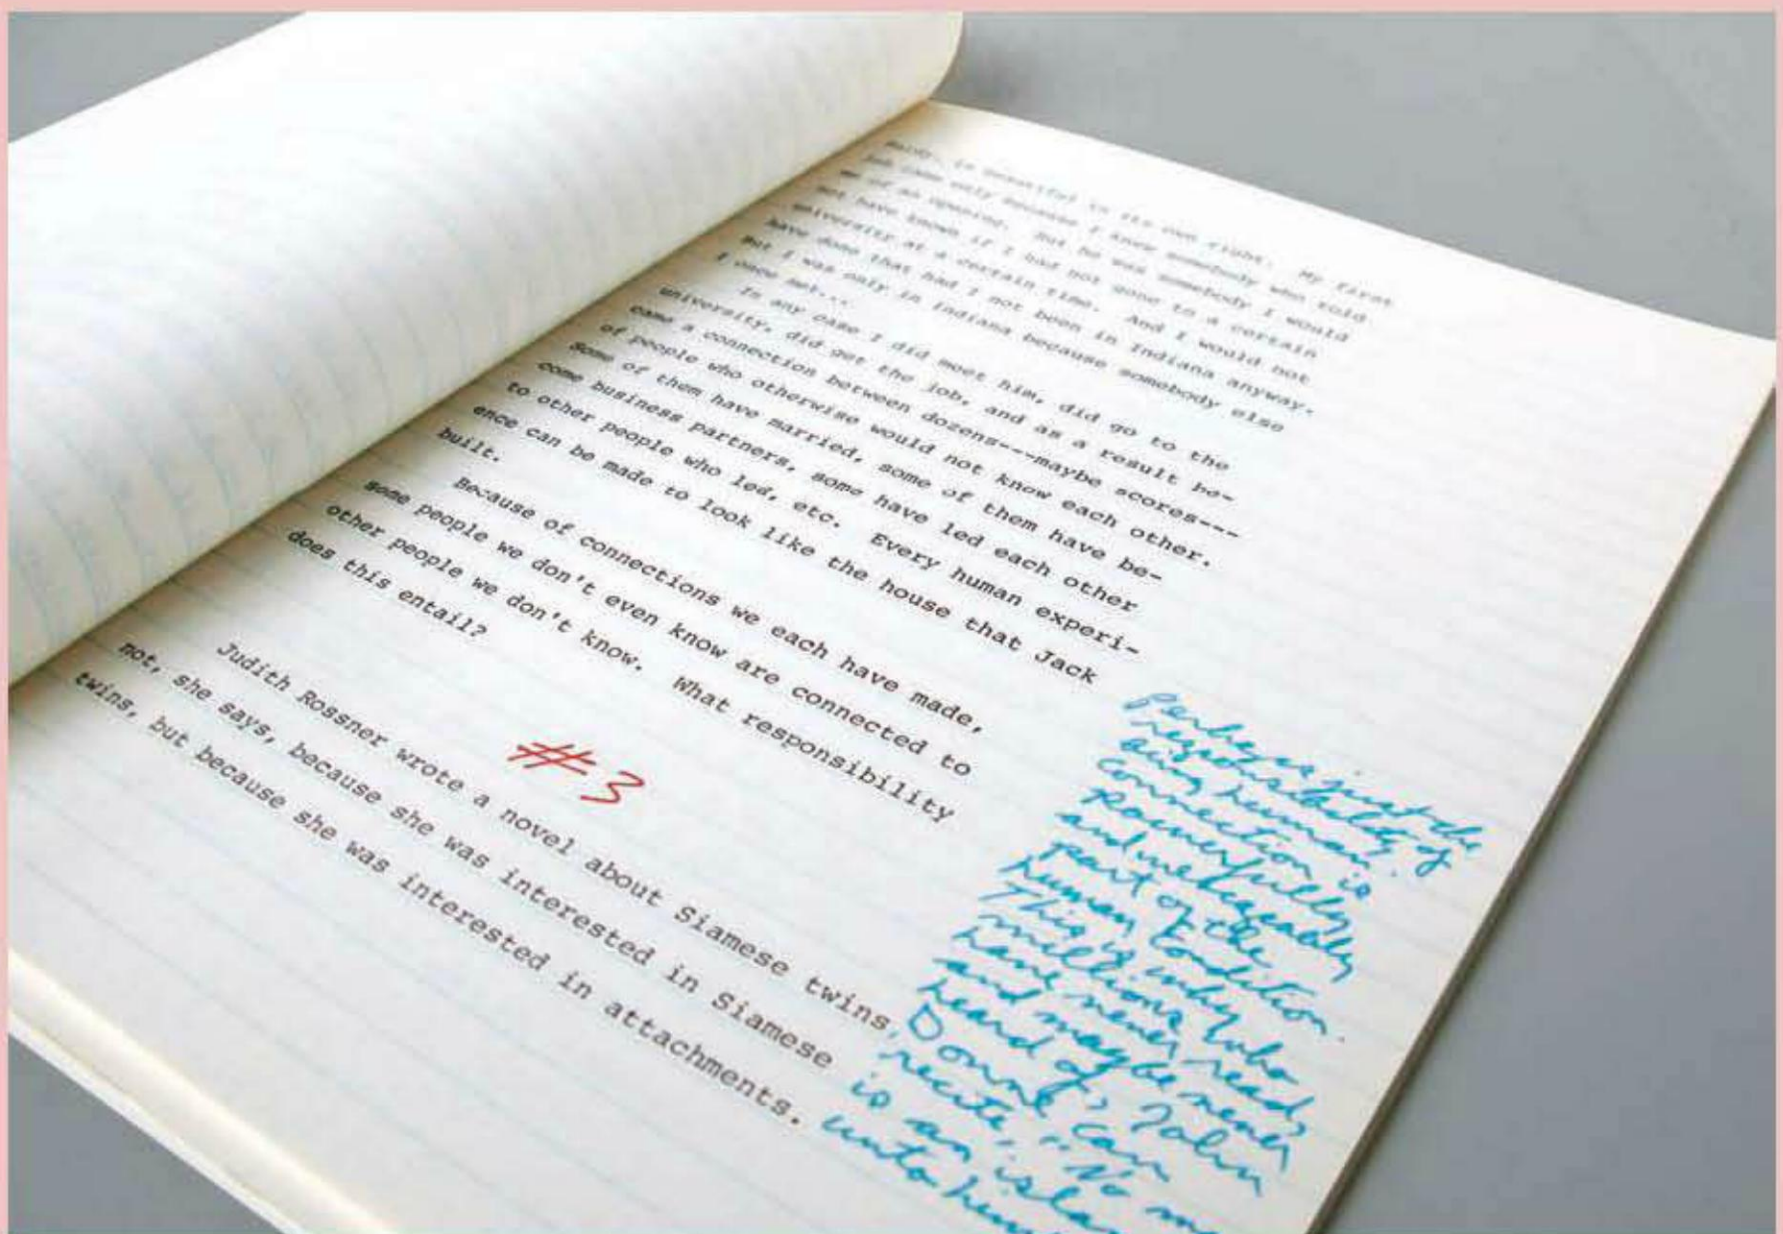 is beautiful in its own right. My first
job came only because I knew somebody who told
me of an opening. But he was somebody I would
not have known if I had not gone to a certain
university at a certain time. And I would not
have done that had I not been in Indiana anyway.
But I was only in Indiana because somebody else
I once met...
In any case I did meet him, did go to the
university, did get the job, and as a result be-
came a connection between dozens---maybe scores---
of people who otherwise would not know each other.
Some of them have married, some of them have be-
come business partners, some have led each other
to other people who led, etc. Every human experi-
ence can be made to look like the house that Jack
built.
Because of connections we each have made,
some people we don't even know are connected to
other people we don't know. What responsibility
does this entail?
#3
Judith Rossner wrote a novel about Siamese twins,
not, she says, because she was interested in Siamese
twins, but because she was interested in attachments.
Perhaps just the
responsibility of
being human.
Connection is
powerfully
and
part of the
human condition.
This is why
millions who
have never read,
and maybe never
heard of, John
Donne can
recite, "No
is an
unto